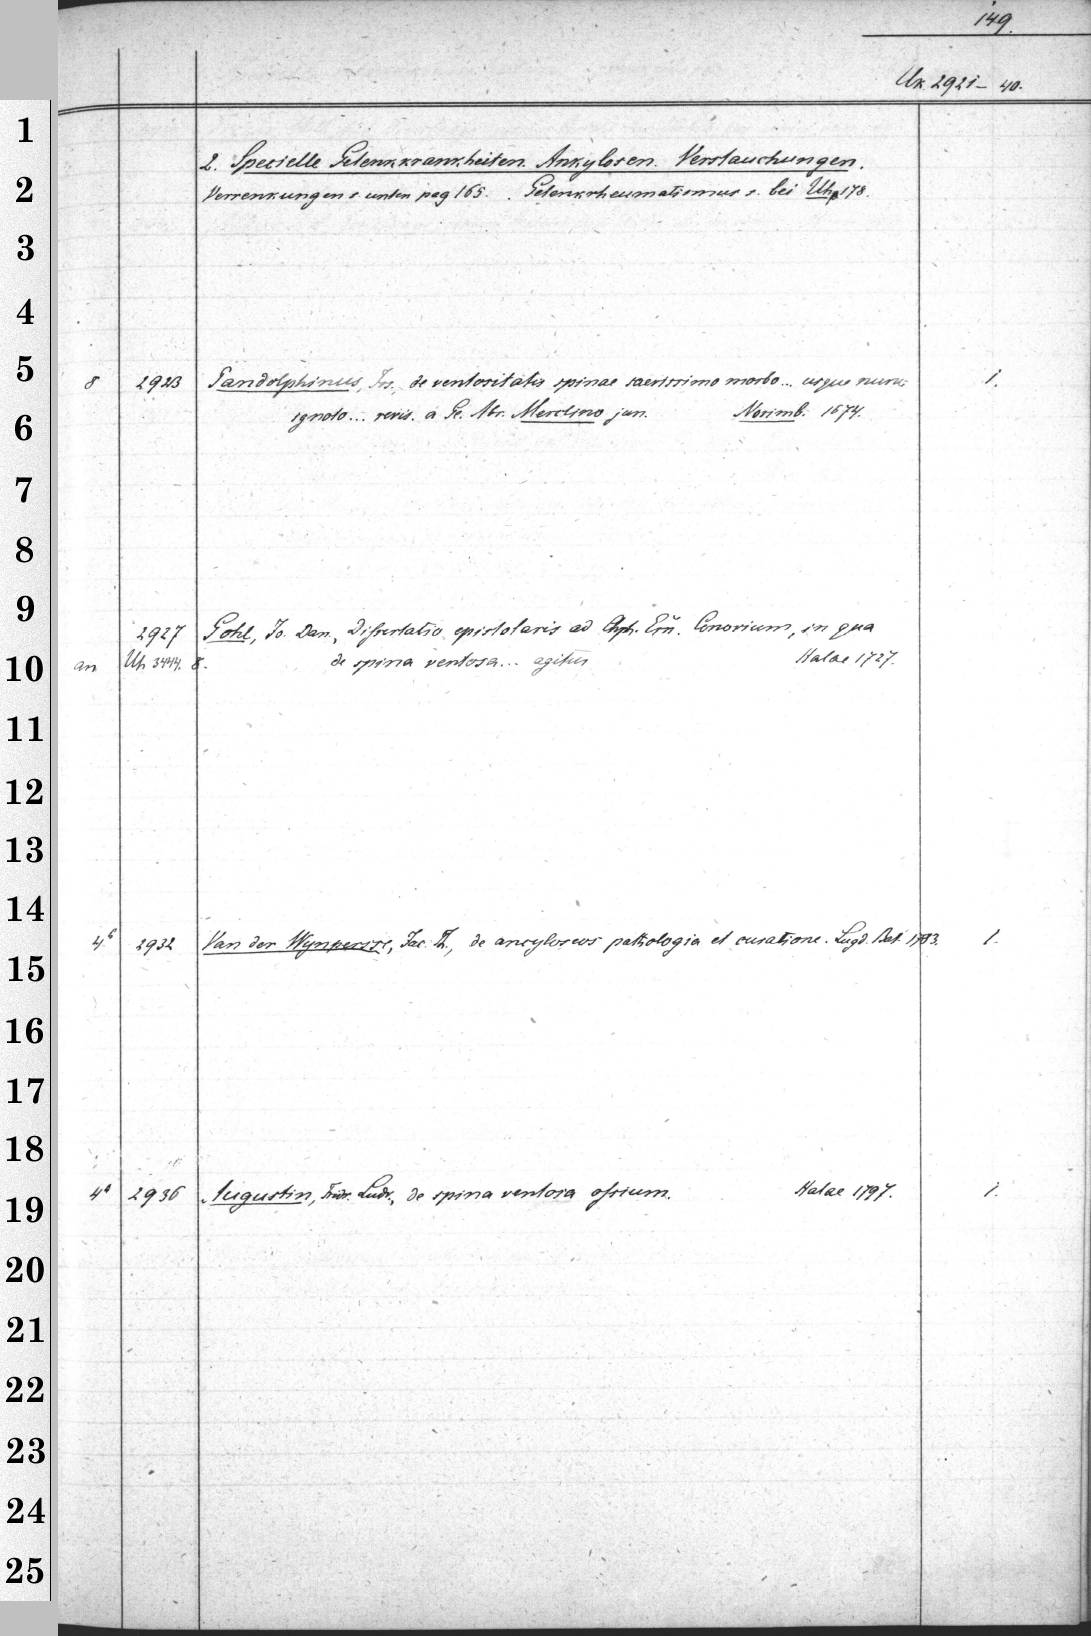 149.
Uk 2921-40.
1
2. Specielle Gelenkkrankheiten. Ankylosen. Verstauchungen.
2
Verrenkungen s. unten pag 165. Gelenkrheumatismus s. bei Uh p 178.
3
4
5
8 2923 Pandolphinus, Jos., de ventositatis spinae saevissimo morbo... usque nunc 1.
6
ignoto... revis. a Ge. Abr. Merclino jun. Norimb. 1674.
7
8
9
2927 Gohl, Jo. Dan., Dissertatio epistolaris ad Chph. Ern. Conovium, in qua
10
an Uh 3444. 8. de spina ventosa... agitur Halae 1727.
11
12
13
14
4° 2932 Van der Wynpersse, Jac. Th., de ancyloseos pathologia et curatione. Lugd. Bat. 1783. 1.
15
16
17
18
4° 2936 Augustin, Fridr. Ludv., de spina ventosa ossium. Halae 1797. 1.
19
20
21
22
23
24
25